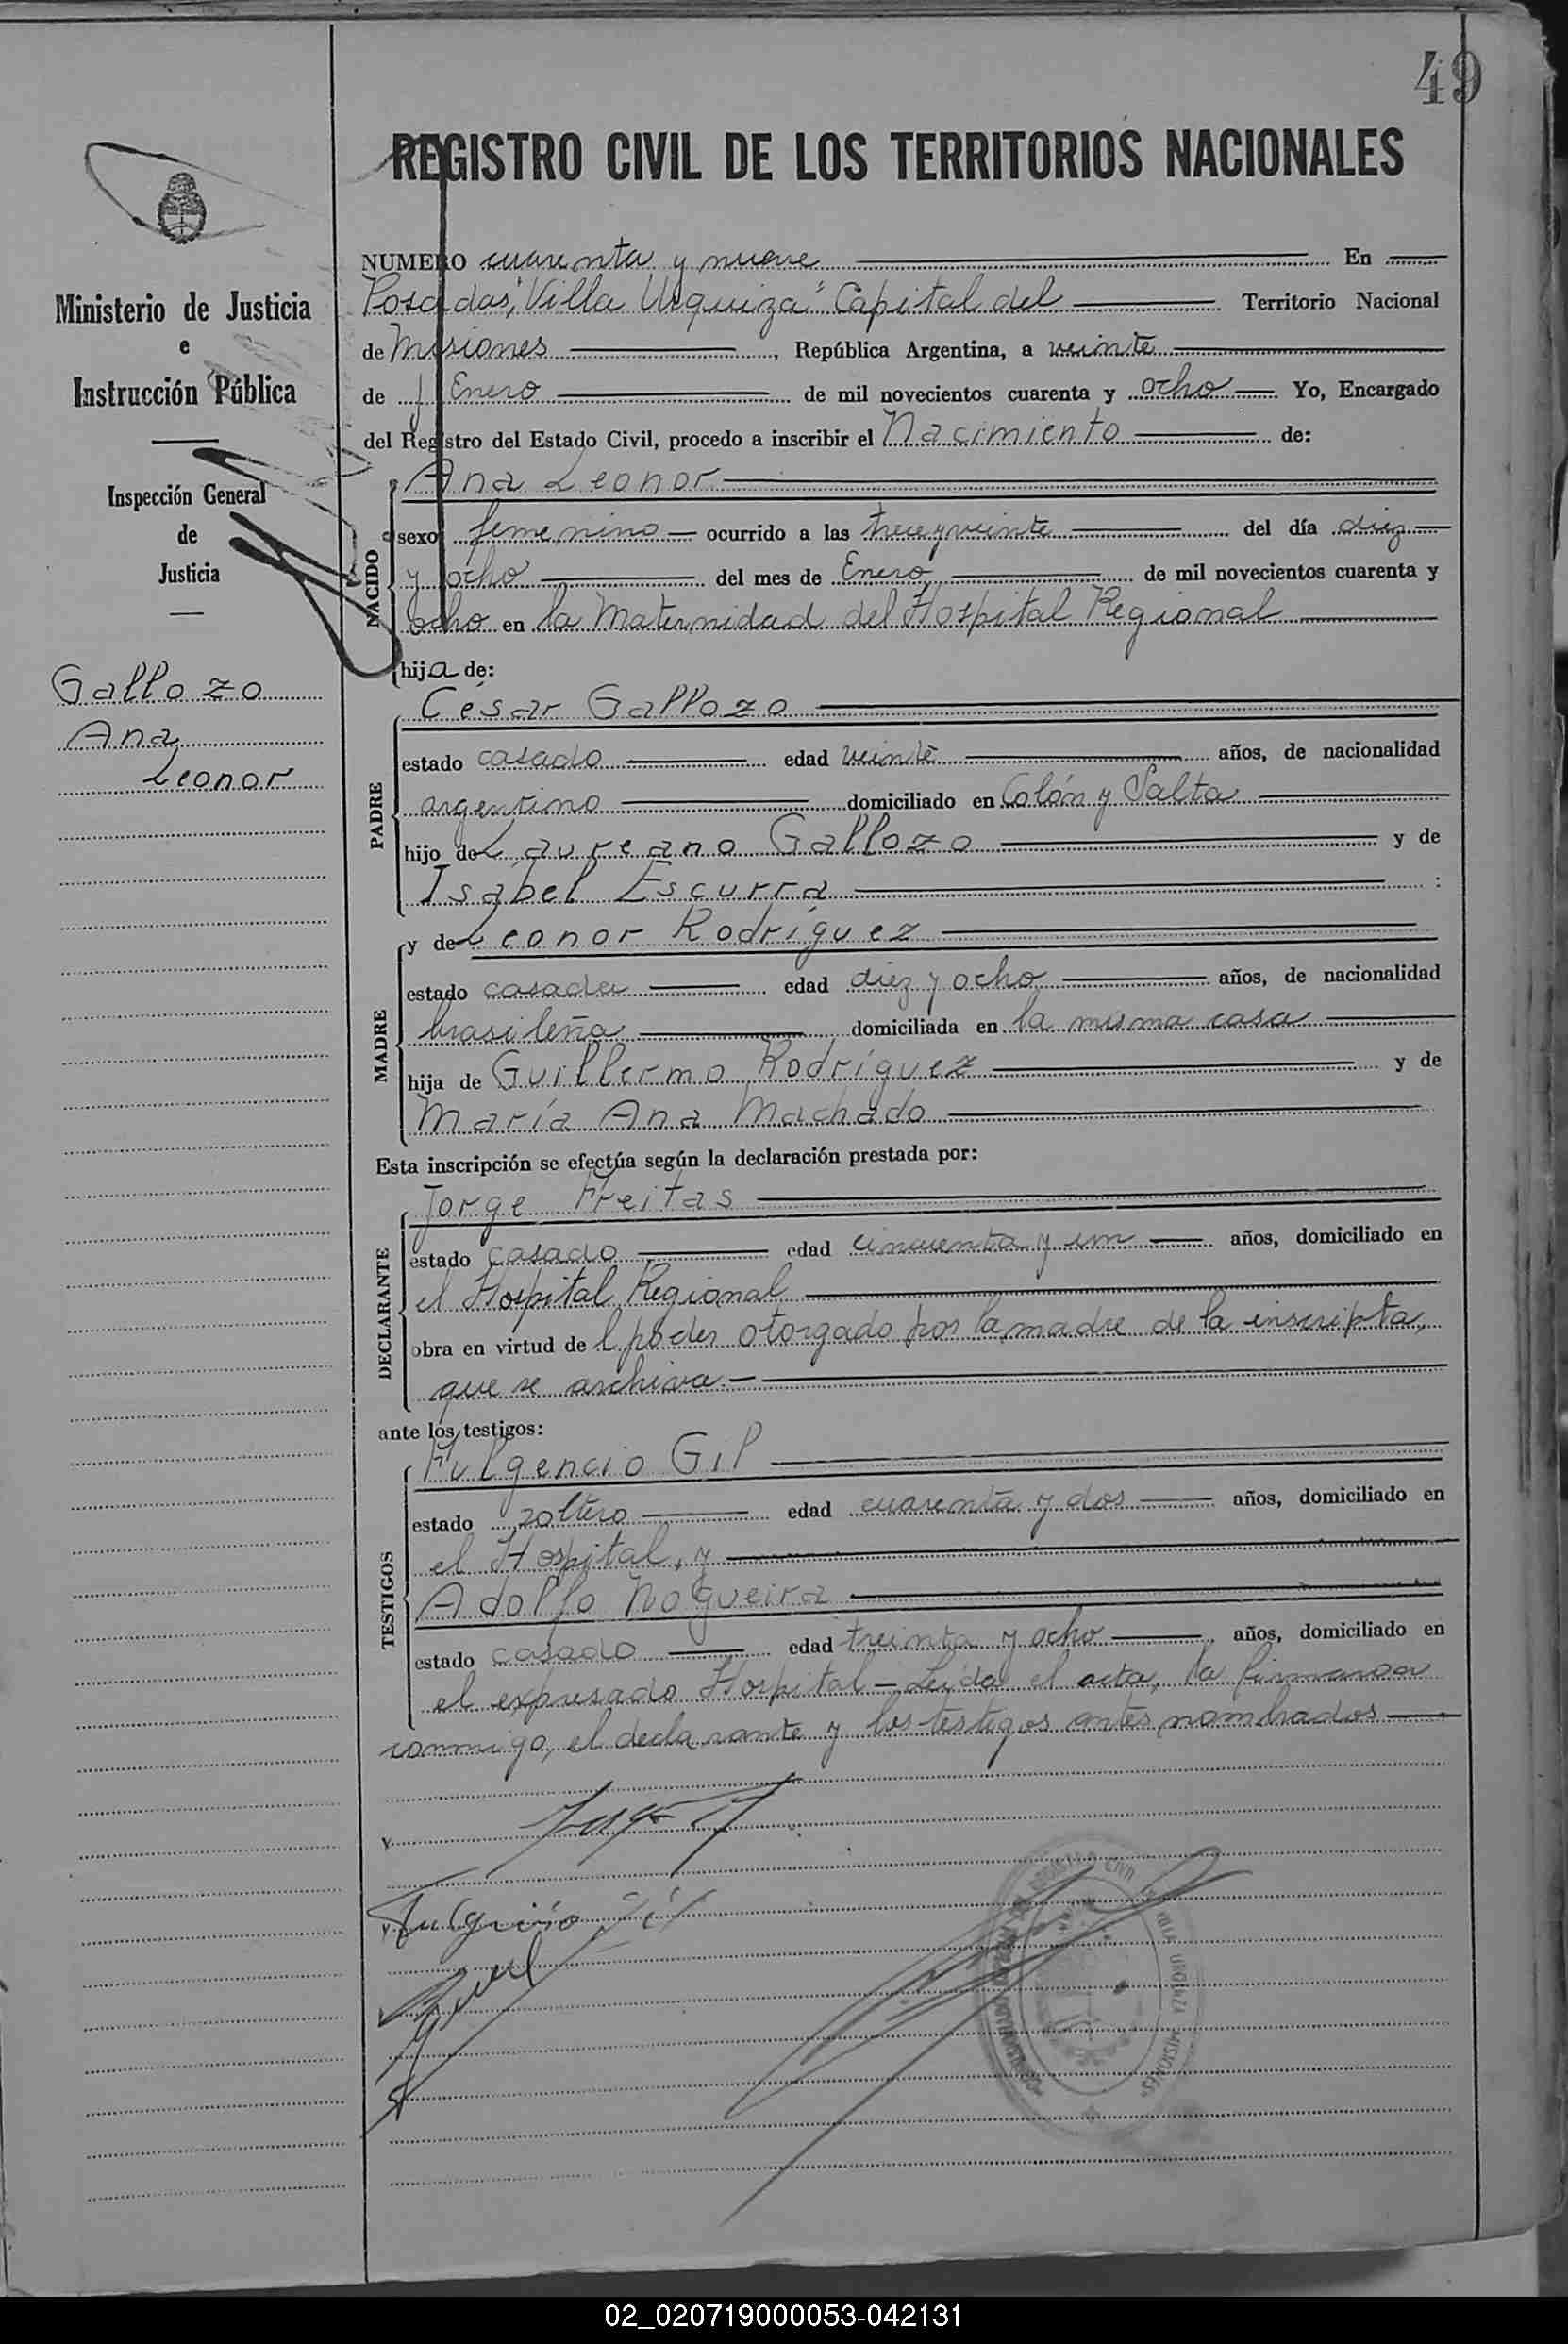 49
REGISTRO CIVIL DE LOS TERRITORIOS NACIONALES
Ministerio de Justicia
e
Instrucción Pública
Inspección General
de
Justicia
Gallozo
Ana
Leonor
NUMERO cuarenta y nueve En
Posadas, "Villa Urquiza" Capital del Territorio Nacional
de Misiones, República Argentina, a veinte
de Enero de mil novecientos cuarenta y ocho Yo, Encargado
del Registro del Estado Civil, procedo a inscribir el Nacimiento de:
NACIDO
Ana Leonor
sexo femenino ocurrido a las trece y veinte del día diez
y ocho del mes de Enero de mil novecientos cuarenta y
ocho en la Maternidad del Hospital Regional
hija de:
PADRE
César Gallozo
estado casado edad veinte años, de nacionalidad
argentino domiciliado en Colón y Salta
hijo de Laureano Gallozo y de
Isabel Escurra :
MADRE
y de Leonor Rodríguez
estado casada edad diez y ocho años, de nacionalidad
brasileña domiciliada en la misma casa
hija de Guillermo Rodríguez y de
María Ana Machado
Esta inscripción se efectúa según la declaración prestada por:
DECLARANTE
Jorge Freitas
estado casado edad cincuenta y un años, domiciliado en
el Hospital Regional
obra en virtud del poder otorgado por la madre de la inscripta,
que se archiva.-
ante los testigos:
TESTIGOS
Fulgencio Gil
estado soltero edad cuarenta y dos años, domiciliado en
el Hospital, y
Adolfo Nogueira
estado casado edad treinta y ocho años, domiciliado en
el expresado Hospital - Leída el acta, la firmaron
conmigo, el declarante y los testigos antes nombrados
Fulgencio Gil
REGISTRO CIVIL VILLA URQUIZA MISIONES
02_020719000053-042131